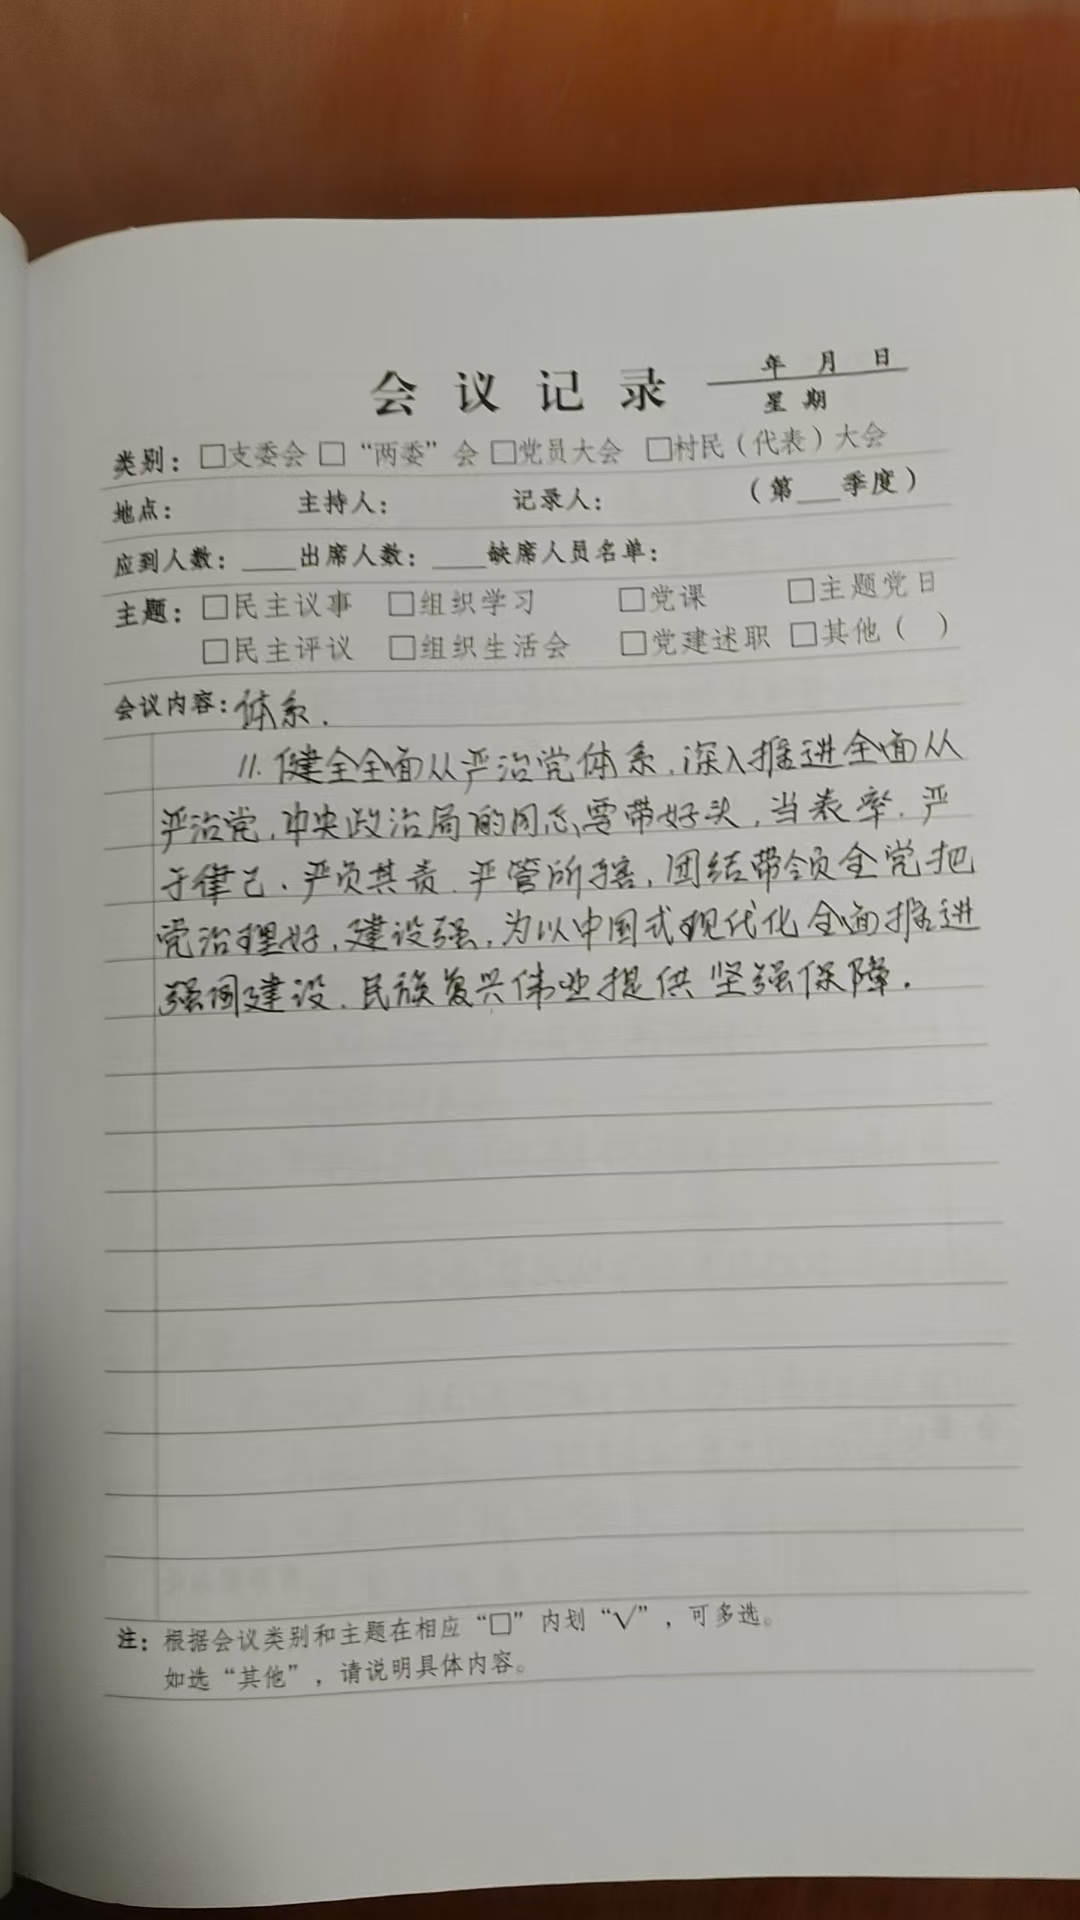 会议记录
年 月 日
星期
类别：□支委会 □“两委”会 □党员大会 □村民（代表）大会
地点： 主持人： 记录人： （第___季度）
应到人数：____出席人数：____缺席人员名单：
主题：□民主议事 □组织学习 □党课 □主题党日
□民主评议 □组织生活会 □党建述职 □其他（ ）
会议内容：体系.
11. 健全全面从严治党体系，深入推进全面从
严治党，中央政治局的同志要带好头，当表率，严
于律己、严负其责、严管所辖，团结带领全党把
党治理好、建设强，为以中国式现代化全面推进
强国建设、民族复兴伟业提供坚强保障.
注：根据会议类别和主题在相应“□”内划“√”，可多选。
如选“其他”，请说明具体内容。